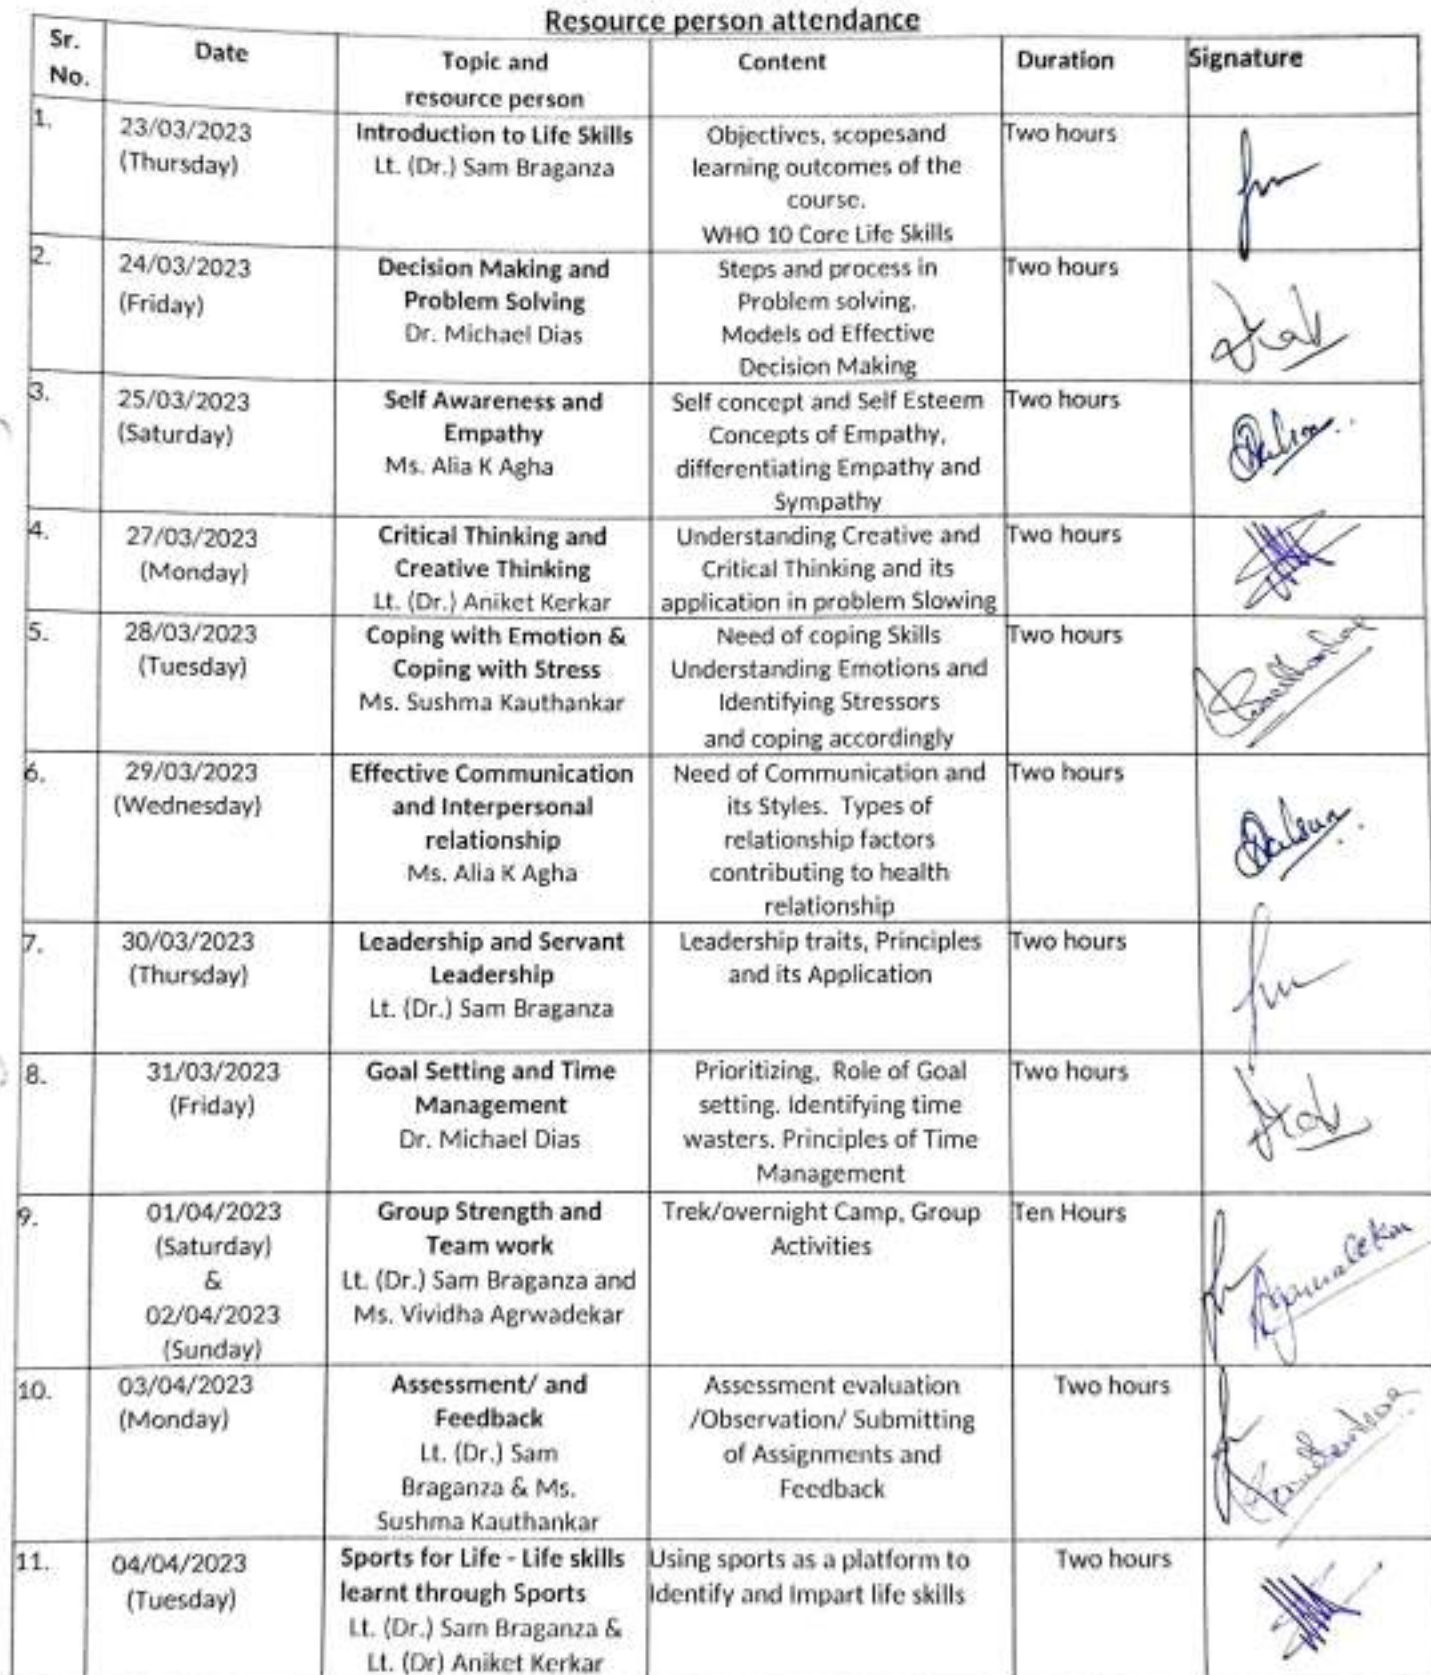 Resource person attendance
Sr. No. Date Topic and resource person Content Duration Signature
1.
23/03/2023
(Thursday)
Introduction to Life Skills
Lt. (Dr.) Sam Braganza
Objectives, scopesand
learning outcomes of the
course.
WHO 10 Core Life Skills
Two hours
2.
24/03/2023
(Friday)
Decision Making and
Problem Solving
Dr. Michael Dias
Steps and process in
Problem solving.
Models od Effective
Decision Making
Two hours
3.
25/03/2023
(Saturday)
Self Awareness and
Empathy
Ms. Alia K Agha
Self concept and Self Esteem
Concepts of Empathy,
differentiating Empathy and
Sympathy
Two hours
4.
27/03/2023
(Monday)
Critical Thinking and
Creative Thinking
Lt. (Dr.) Aniket Kerkar
Understanding Creative and
Critical Thinking and its
application in problem Slowing
Two hours
5.
28/03/2023
(Tuesday)
Coping with Emotion &
Coping with Stress
Ms. Sushma Kauthankar
Need of coping Skills
Understanding Emotions and
Identifying Stressors
and coping accordingly
Two hours
6.
29/03/2023
(Wednesday)
Effective Communication
and Interpersonal
relationship
Ms. Alia K Agha
Need of Communication and
its Styles. Types of
relationship factors
contributing to health
relationship
Two hours
7.
30/03/2023
(Thursday)
Leadership and Servant
Leadership
Lt. (Dr.) Sam Braganza
Leadership traits, Principles
and its Application
Two hours
8.
31/03/2023
(Friday)
Goal Setting and Time
Management
Dr. Michael Dias
Prioritizing, Role of Goal
setting. Identifying time
wasters. Principles of Time
Management
Two hours
9.
01/04/2023
(Saturday)
&
02/04/2023
(Sunday)
Group Strength and
Team work
Lt. (Dr.) Sam Braganza and
Ms. Vividha Agrwadekar
Trek/overnight Camp, Group
Activities
Ten Hours
10.
03/04/2023
(Monday)
Assessment/ and
Feedback
Lt. (Dr.) Sam
Braganza & Ms.
Sushma Kauthankar
Assessment evaluation
/Observation/ Submitting
of Assignments and
Feedback
Two hours
11.
04/04/2023
(Tuesday)
Sports for Life - Life skills
learnt through Sports
Lt. (Dr.) Sam Braganza &
Lt. (Dr) Aniket Kerkar
Using sports as a platform to
Identify and Impart life skills
Two hours